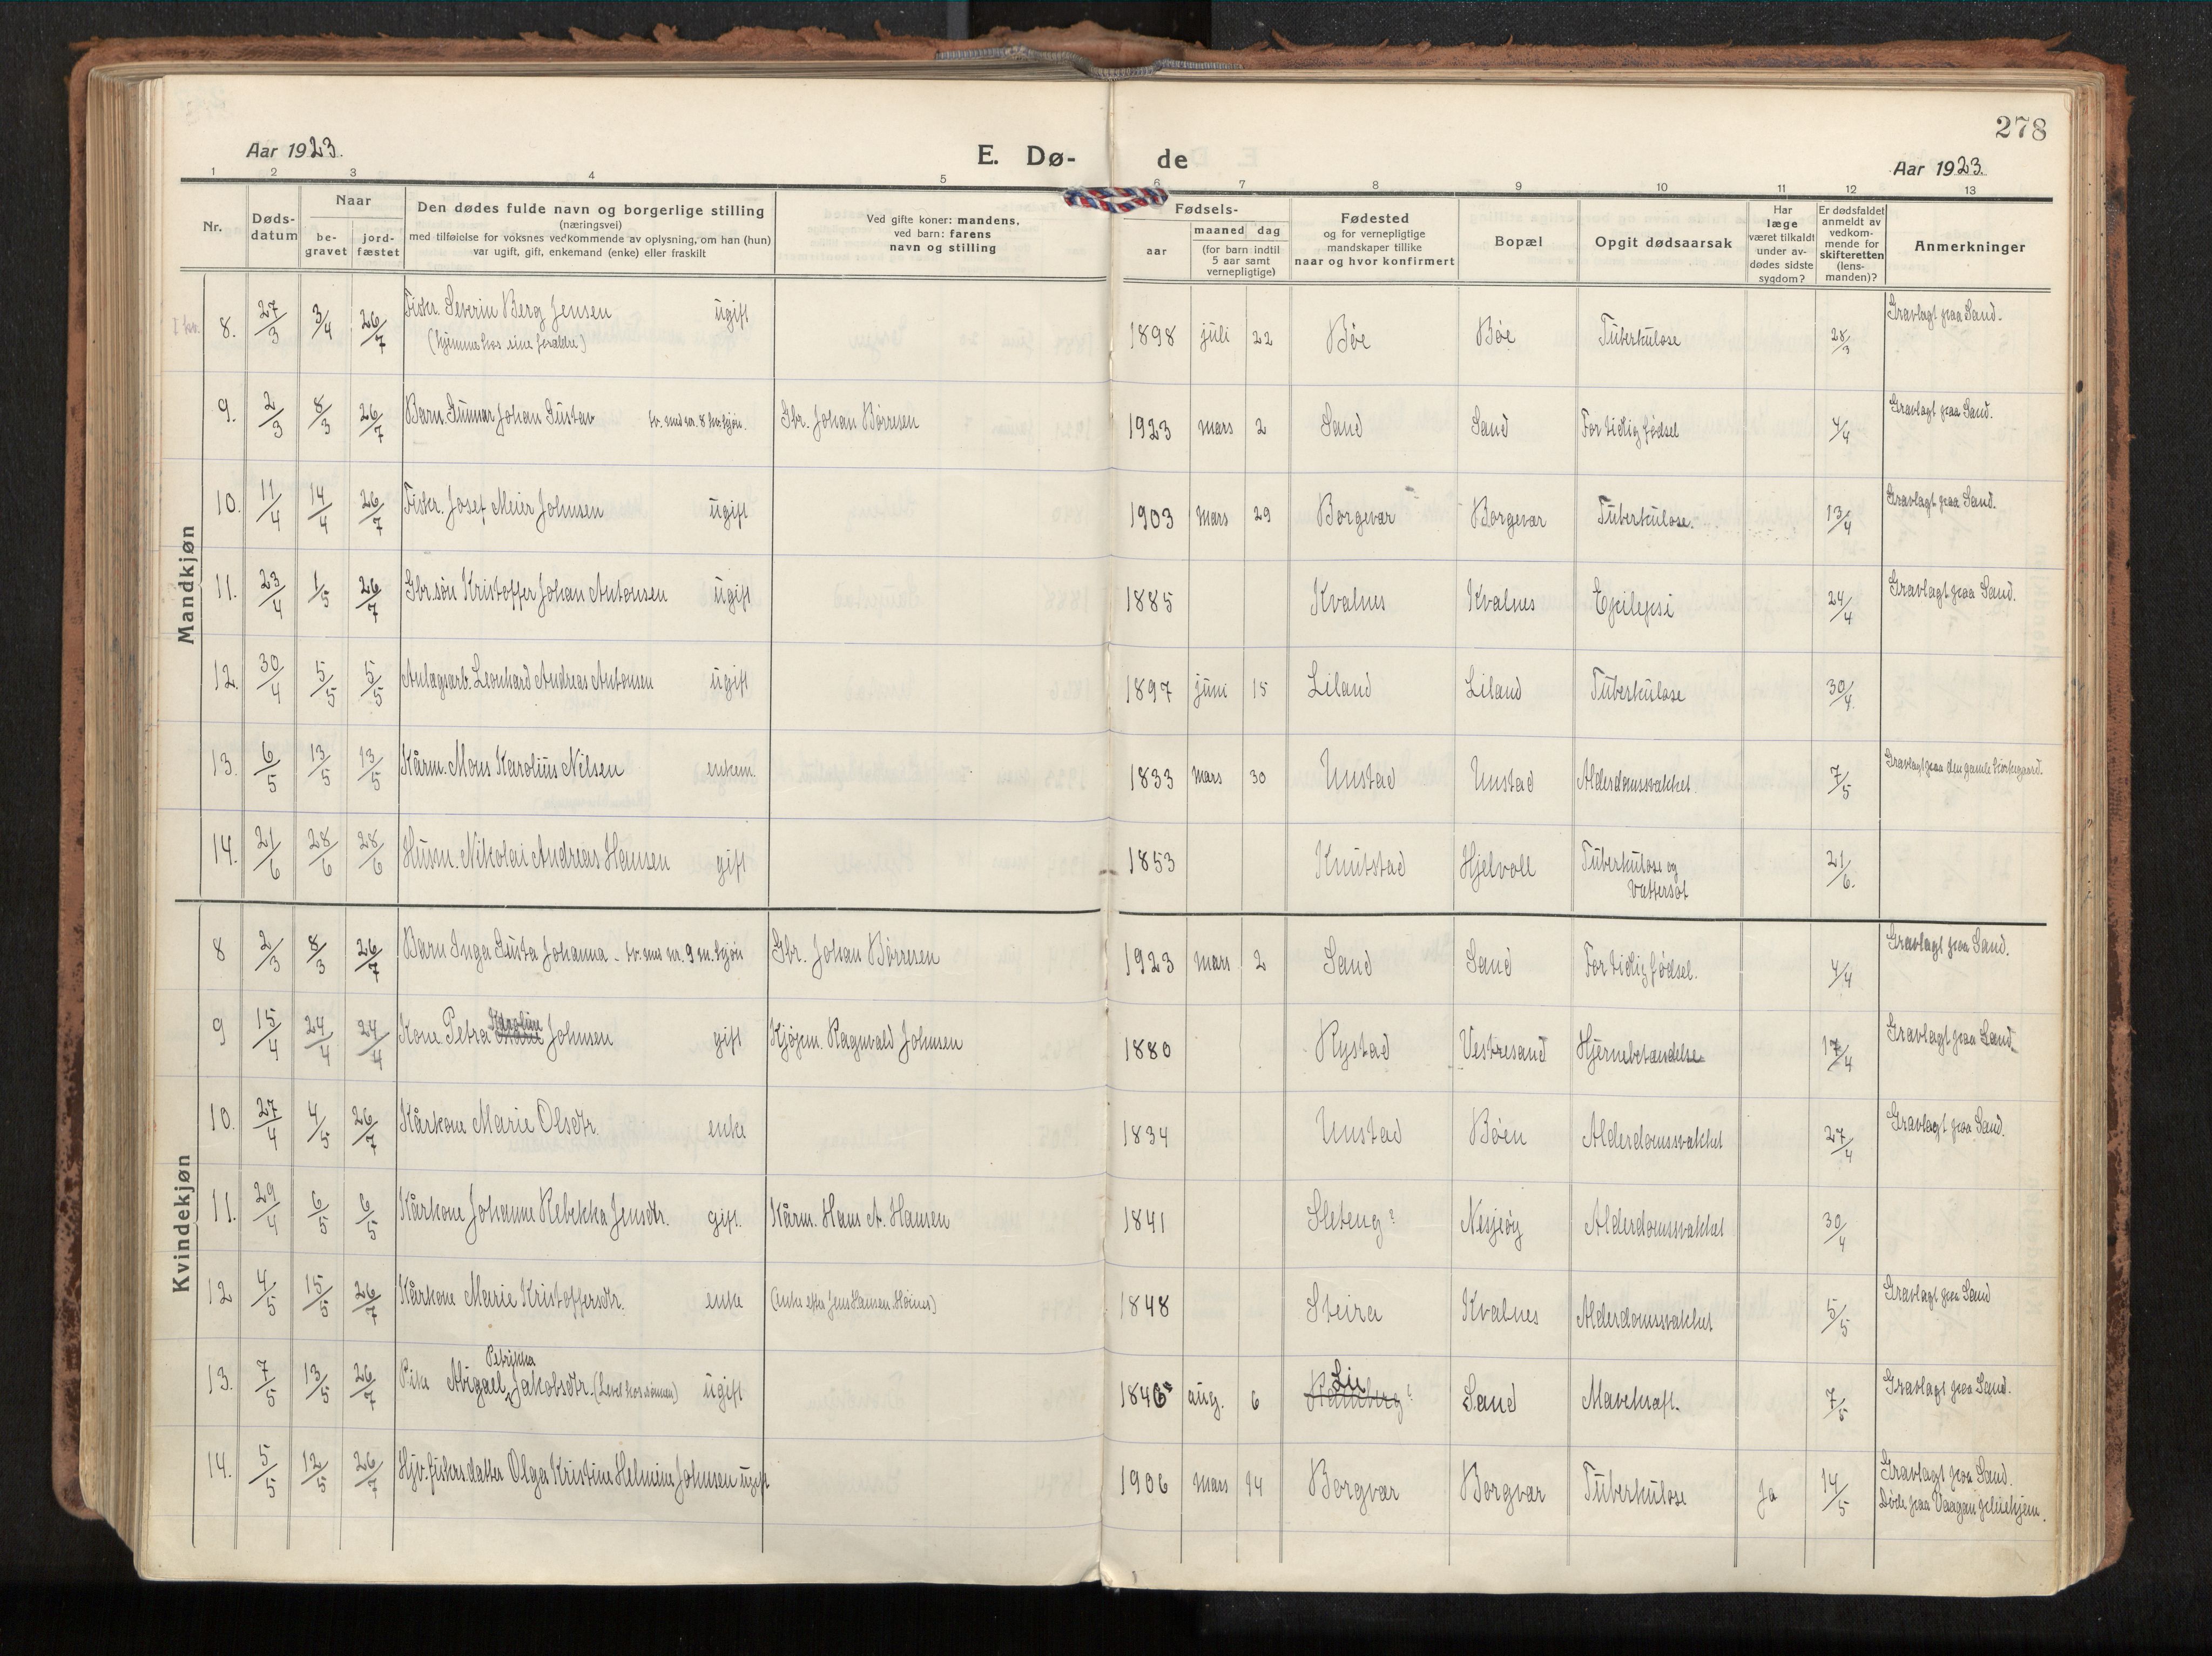 278
Aar 1923.
E. Dø-
de
Aar 1923.
1 2 3 4 5 6 7 8 9 10 11 12 13
Nr.
Døds-
datum
Naar
be-
gravet
jord-
fæstet
Den dødes fulde navn og borgerlige stilling
(næringsvei)
med tilføielse for voksnes vedkommende av oplysning, om han (hun)
var ugift, gift, enkemand (enke) eller fraskilt
Ved gifte koner: mandens,
ved barn: farens
navn og stilling
Fødsels-
aar
maaned dag
(for barn indtil
5 aar samt
vernepligtige)
Fødested
og for vernepligtige
mandskaper tillike
naar og hvor konfirmert
Bopæl
Opgit dødsaarsak
Har
læge
været tilkaldt
under av-
dødes sidste
sygdom?
Er dødsfaldet
anmeldt av
vedkom-
mende for
skifteretten
(lens-
manden)?
Anmerkninger
Mandkjøn
8. 27/3 3/4 26/7 Fisker. Severin Berg Jensen ugift 1898 juli 22 Bøe Bøe Tuberkulose 28/3 Gravlagt paa Sand.
(hjemme hos sine forældre)
9. 2/3 8/3 26/7 Barn Gunnar Johan Gustav tv. med nr. 8 kv.kjøn. Gbr. Johan Børresen 1923 mars 2 Sand Sand For tidlig fødsel 4/4 Gravlagt paa Sand.
10. 11/4 14/4 26/7 Fisker. Josef Meier Johnsen ugift 1903 mars 29 Borgevær Borgevær Tuberkulose. 13/4 Gravlagt paa Sand.
11. 23/4 1/5 26/7 Gbr.søn Kristoffer Johan Antonsen ugift 1885 Kvalnes Kvalnes Epilepsi 24/4 Gravlagt paa Sand.
12. 30/4 5/5 5/5 Anlægsarb. Leonhard Andreas Antonsen ugift 1897 juni 15 Liland Liland Tuberkulose 30/4
13. 6/5 13/5 13/5 Kårm. Mons Karolius Nilsen enkem. 1833 mars 30 Unstad Unstad Alderdomssvakhet 7/5 Gravlagt paa den gamle kirkegaard.
14. 21/6 28/6 28/6 Husm. Nikolai Andreas Hansen gift 1853 Knutstad Hjelvoll Tuberkulose og 21/6.
Vattersot
Kvindekjøn
8 2/3 8/3 26/7 Barn Inga Gusta Johanna - tv. med nr. 9 m.kjøn Gbr. Johan Børresen 1923 mars 2 Sand Sand For tidlig fødsel. 4/4 Gravlagt paa Sand.
Karoline
9 15/4 24/4 24/4 Kone Petra Johnsen gift Kjøpm. Ragnvald Johnsen 1880 Rystad Vestresand Hjernebetændelse 17/4 Gravlagt paa Sand.
10. 27/4 4/5 26/7 Kårkone Marie Olsdtr. enke 1834 Unstad Bøen Alderdomssvakhet 27/4 Gravlagt paa Sand.
11. 29/4 6/5 6/5 Kårkone Johanne Rebekka Jensdtr. gift. Kårm. Hans A. Hansen 1841 Sleteng? Nesjeøy Alderdomssvakhet 30/4
12 4/5 15/5 26/7 Kårkone Marie Kristoffersdtr. enke (enke efter Jens Hansen Høines) 1848 Steira Kvalnes Alderdomssvakhet 5/5 Gravlagt paa Sand
Petrikka
Lie
13. 7/5 13/5 26/7 Pike Abigael Jakobsdtr. (Levet hos sønnen) ugift 1846 aug. 6 Ramberg? Sand Mavekræft. 7/5 Gravlagt paa Sand.
14. 5/5 12/5 26/7 Hjv. fiskers datter Olga Kristine Helmine Johnsen ugift 1906 mars 14 Borgvær Borgvær Tuberkulose Ja 14/5 Gravlagt paa Sand.
Døde paa Vaagan pleiehjem.